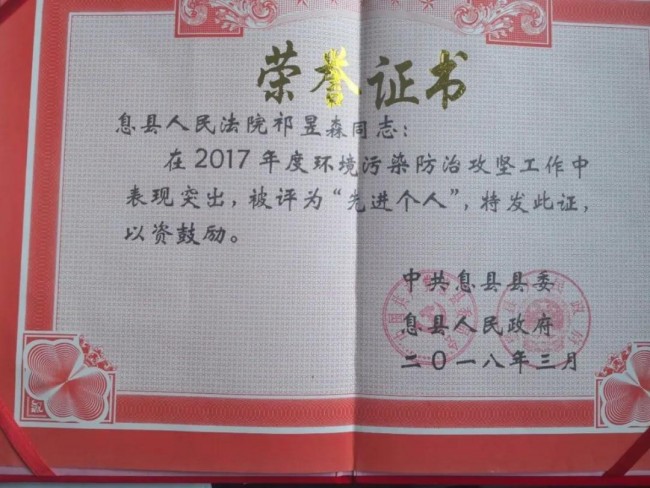 荣誉证书
息县人民法院祁昱森同志：
在2017年度环境污染防治攻坚工作中
表现突出，被评为“先进个人”，特发此证，
以资鼓励。
中共息县县委
息县人民政府
二〇一八年三月